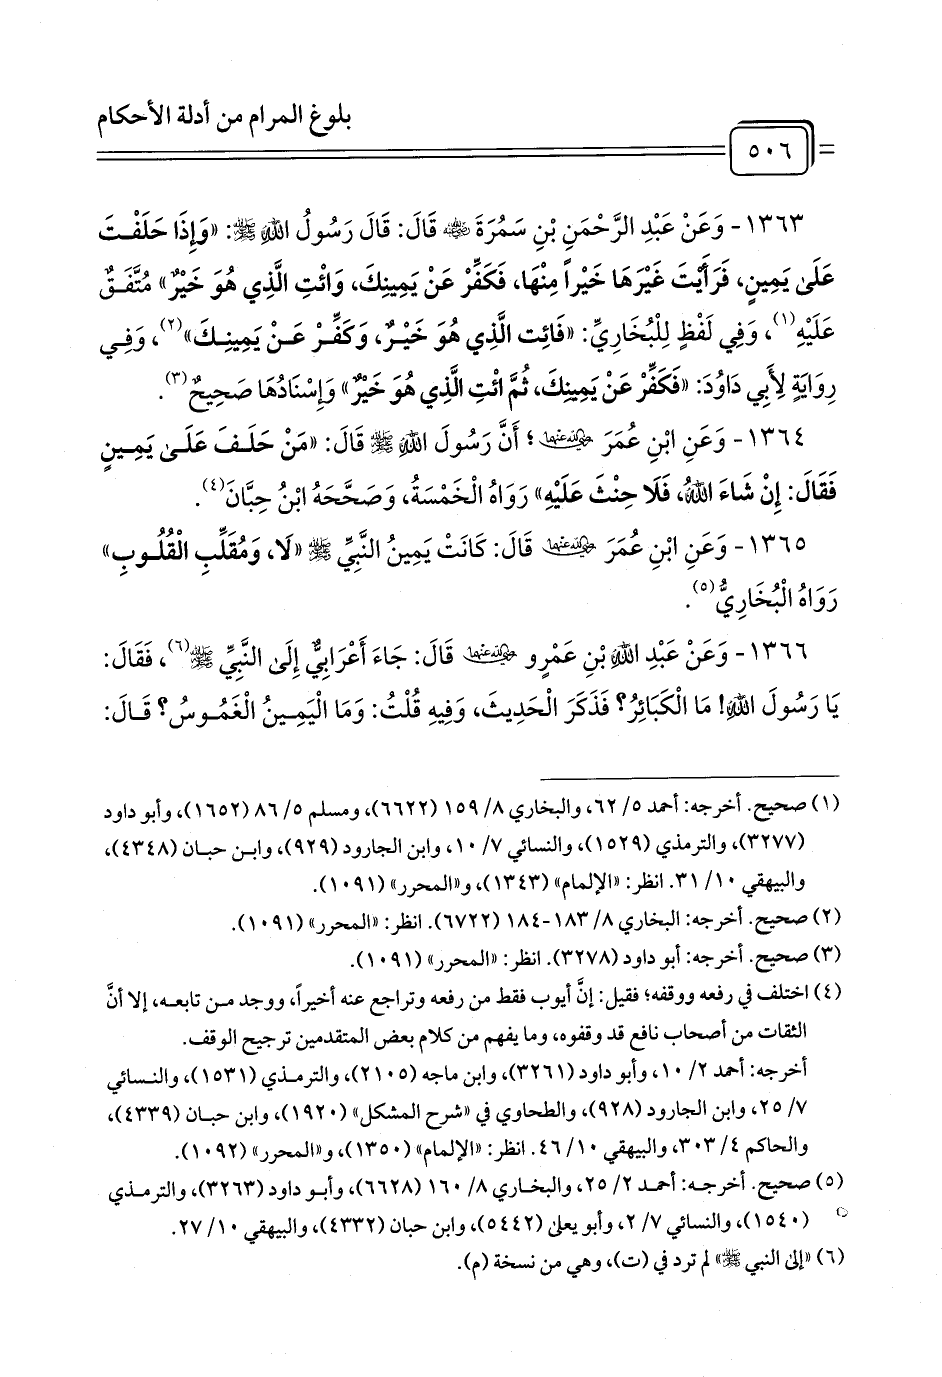 بلوغ المرام من أدلة الأحكام
٥٠٦
١٣٦٣- وَعَنْ عَبْدِ الرَّحْمَنِ بْنِ سَمُرَةَ رضي الله عنه قَالَ: قَالَ رَسُولُ اللهِ ﷺ: «وَإِذَا حَلَفْتَ
عَلَى يَمِينٍ، فَرَأَيْتَ غَيْرَهَا خَيْراً مِنْهَا، فَكَفِّرْ عَنْ يَمِينِكَ، وَائْتِ الَّذِي هُوَ خَيْرٌ» مُتَّفَقٌ
عَلَيْهِ(١)، وَفِي لَفْظٍ لِلْبُخَارِيِّ: «فَائِت الَّذِي هُوَ خَيْرٌ، وَكَفِّرْ عَنْ يَمِينِكَ»(٢)، وَفِي
رِوَايَةٍ لِأَبِي دَاوُدَ: «فَكَفِّرْ عَنْ يَمِينِكَ، ثُمَّ ائْتِ الَّذِي هُوَ خَيْرٌ» وَإِسْنَادُهَا صَحِيحٌ(٣).
١٣٦٤- وَعَنِ ابْنِ عُمَرَ رضي الله عنهما؛ أَنَّ رَسُولَ اللهِ ﷺ قَالَ: «مَنْ حَلَفَ عَلَى يَمِينٍ
فَقَالَ: إِنْ شَاءَ اللهُ، فَلَا حِنْثَ عَلَيْهِ» رَوَاهُ الْخَمْسَةُ، وَصَحَّحَهُ ابْنُ حِبَّانَ(٤).
١٣٦٥- وَعَنِ ابْنِ عُمَرَ رضي الله عنهما قَالَ: كَانَتْ يَمِينُ النَّبِيِّ ﷺ «لَا، وَمُقَلِّبِ الْقُلُوبِ»
رَوَاهُ الْبُخَارِيُّ(٥).
١٣٦٦- وَعَنْ عَبْدِ اللهِ بْنِ عَمْرٍو رضي الله عنهما قَالَ: جَاءَ أَعْرَابِيٌّ إِلَى النَّبِيِّ ﷺ(٦)، فَقَالَ:
يَا رَسُولَ اللهِ! مَا الْكَبَائِرُ؟ فَذَكَرَ الْحَدِيثَ، وَفِيهِ قُلْتُ: وَمَا الْيَمِينُ الْغَمُوسُ؟ قَالَ:
(١) صحيح. أخرجه: أحمد ٥/ ٦٢، والبخاري ٨/ ١٥٩ (٦٦٢٢)، ومسلم ٥/ ٨٦ (١٦٥٢)، وأبو داود
(٣٢٧٧)، والترمذي (١٥٢٩)، والنسائي ٧/ ١٠، وابن الجارود (٩٢٩)، وابن حبان (٤٣٤٨)،
والبيهقي ١٠/ ٣١. انظر: «الإلمام» (١٣٤٣)، و«المحرر» (١٠٩١).
(٢) صحيح. أخرجه: البخاري ٨/ ١٨٣-١٨٤ (٦٧٢٢). انظر: «المحرر» (١٠٩١).
(٣) صحيح. أخرجه: أبو داود (٣٢٧٨). انظر: «المحرر» (١٠٩١).
(٤) اختلف في رفعه ووقفه؛ فقيل: إنَّ أيوب فقط من رفعه وتراجع عنه أخيراً، ووجد من تابعه، إلا أنَّ
الثقات من أصحاب نافع قد وقفوه، وما يفهم من كلام بعض المتقدمين ترجيح الوقف.
أخرجه: أحمد ٢/ ١٠، وأبو داود (٣٢٦١)، وابن ماجه (٢١٠٥)، والترمذي (١٥٣١)، والنسائي
٧/ ٢٥، وابن الجارود (٩٢٨)، والطحاوي في «شرح المشكل» (١٩٢٠)، وابن حبان (٤٣٣٩)،
والحاكم ٤/ ٣٠٣، والبيهقي ١٠/ ٤٦. انظر: «الإلمام» (١٣٥٠)، و«المحرر» (١٠٩٢).
(٥) صحيح. أخرجه: أحمد ٢/ ٢٥، والبخاري ٨/ ١٦٠ (٦٦٢٨)، وأبو داود (٣٢٦٣)، والترمذي
(١٥٤٠)، والنسائي ٧/ ٢، وأبو يعلى (٥٤٤٢)، وابن حبان (٤٣٣٢)، والبيهقي ١٠/ ٢٧.
(٦) «إلى النبي ﷺ» لم ترد في (ت)، وهي من نسخة (م).